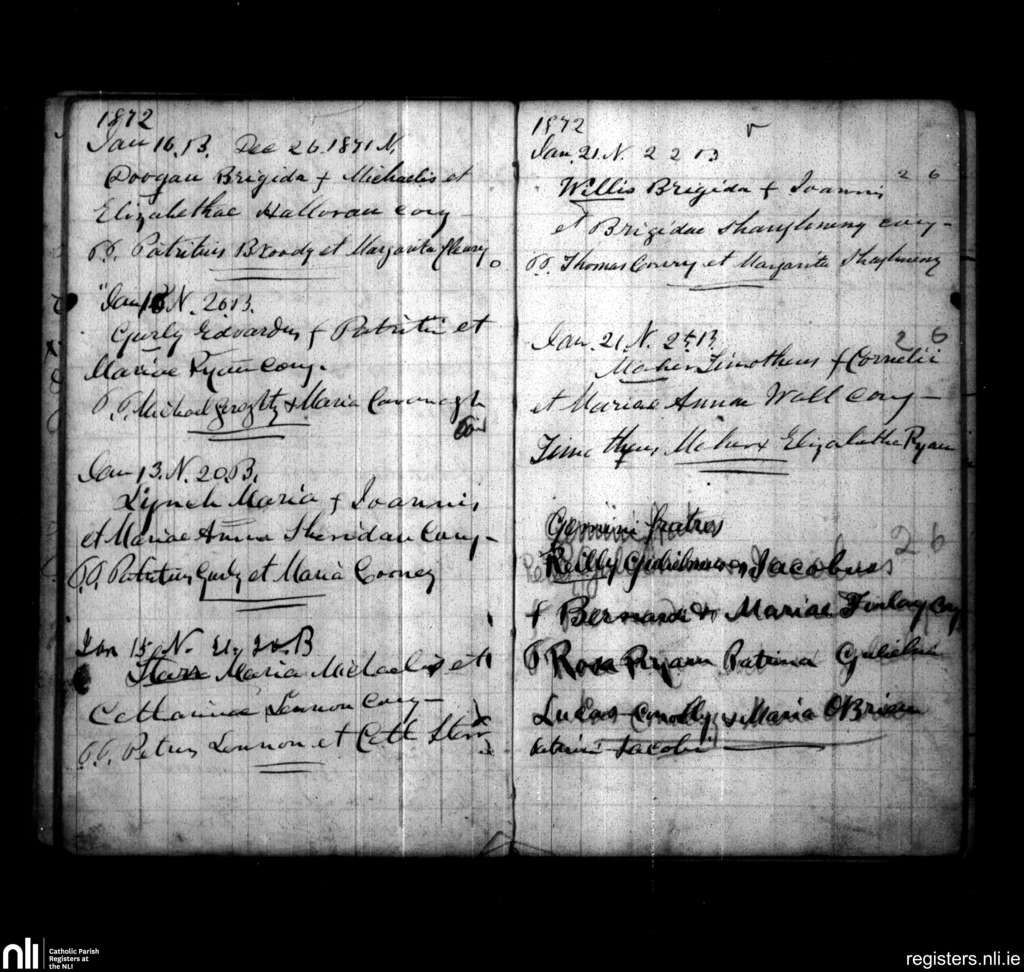 1872
Jan 16. B. Dec 26. 1871 N.
Doogan Brigida f Michaelis et
Elizabethae Halloran conj
P.P. Patritius Broody et Margarita Cleary
Jan N. 20 B.
Gurly Edvardus f Patritii et
Mariae Ryan conj.
P.P. Michael & Maria Cavanagh
Jan 13. N. 20. B.
Lynch Maria f Joannis
et Mariae Anna Sheridan Conj-
P.P. Patritius Gurly et Maria Cooney
Jan 15 N. 21. B
Starr Maria Michaelis et
Catharinae Lennon Conj-
P.P. Petrus Lennon et Cath Starr
1872
Jan. 21. N. 22 B
Willis Brigida f Joannis 26
et Brigidae Shaughnessy conj-
P.P. Thomas Conery et Margarita Shaghnessy
Jan. 21. N. 25 B. 26
Maher Timotheus f Cornelii
et Mariae Annae Wall Conj-
Timotheus Maher & Elizabetha Ryan
Gemini fratres
Reilly Gulielmus Jacobus 26
f Bernardi & Mariae Finlay Conj
P Rosa Ryan Patrina Gulielmi
Lucas Conolly & Maria O'Brien
Patrini Jacobi
nli
Catholic Parish
Registers at
the NLI
registers.nli.ie